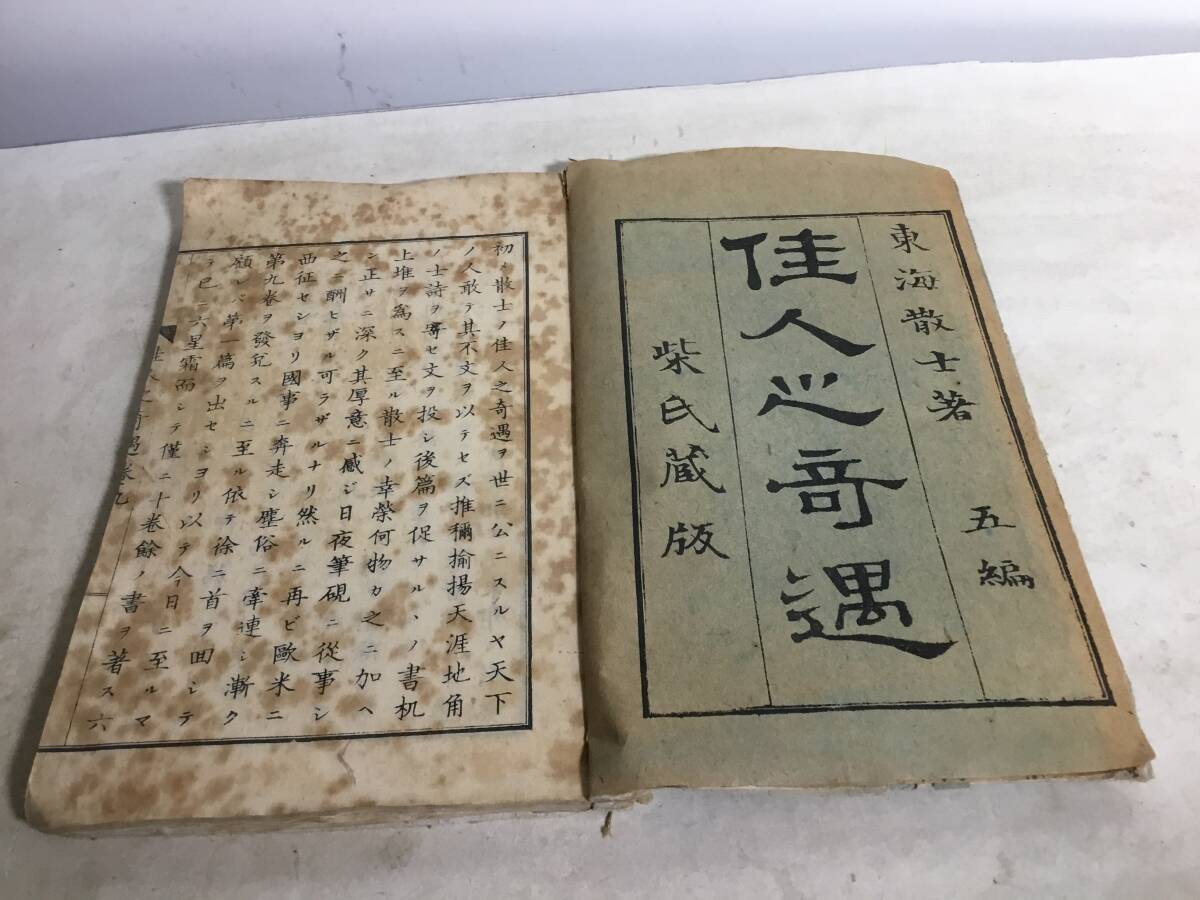 東海散士著 五編
佳人之奇遇
柴氏藏版
初メ散士ノ佳人之奇遇ヲ世ニ公ニスルヤ天下
ノ人敢テ其不文ヲ以テセズ推稱揄揚天涯地角
ノ士詩ヲ寄セ文ヲ投シ後篇ヲ促サルヽノ書机
上堆ヲ爲スニ至ル散士ノ幸榮何物カ之ニ加ヘ
ン正サニ深ク其厚意ニ感ジ日夜筆硯ニ從事シ
之ニ酬ヒザル可ラザルナリ然ルニ再ビ歐米ニ
西征セシヨリ國事ニ奔走シ塵俗ニ牽連シ漸ク
第九卷ヲ發兌スルニ至ル依テ徐ニ首ヲ囬シテ
顧レバ第一篇ヲ出セシヨリ以テ今日ニ至ルマ
テ已ニ六星霜而シテ僅ニ十卷餘ノ書ヲ著ス六
佳人之奇遇卷九